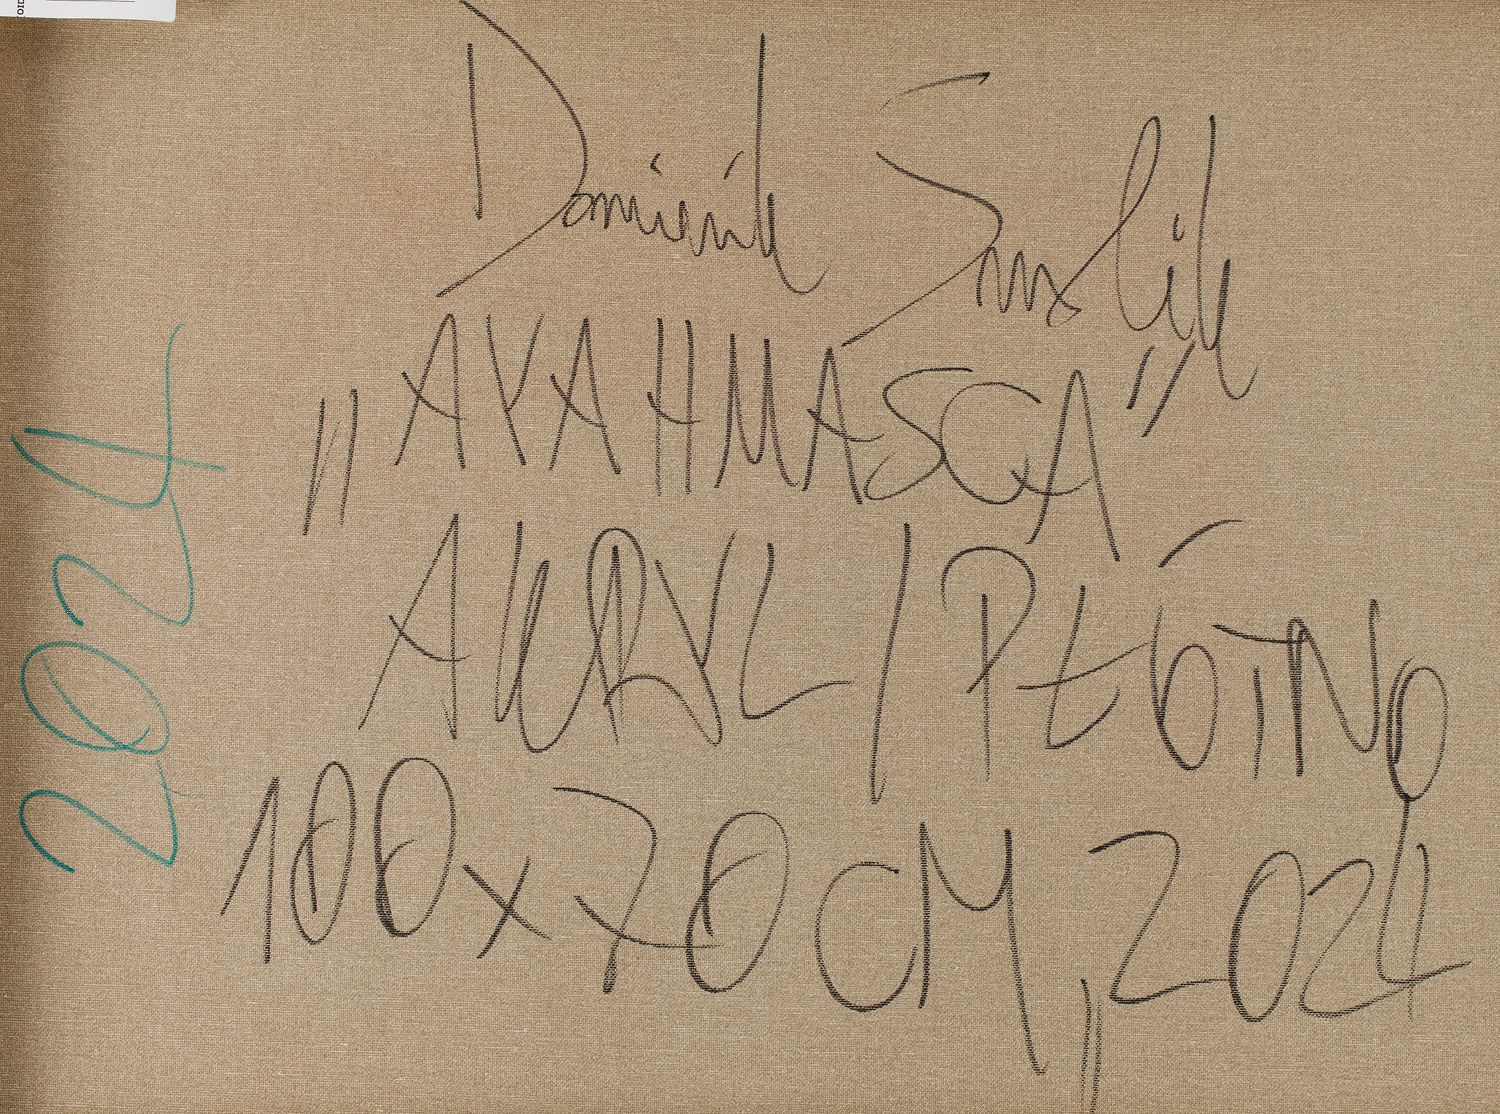 Dominik Smolik
"AYAHUASCA"
AKRYL / PŁÓTNO
100x70 CM, 2024
2024